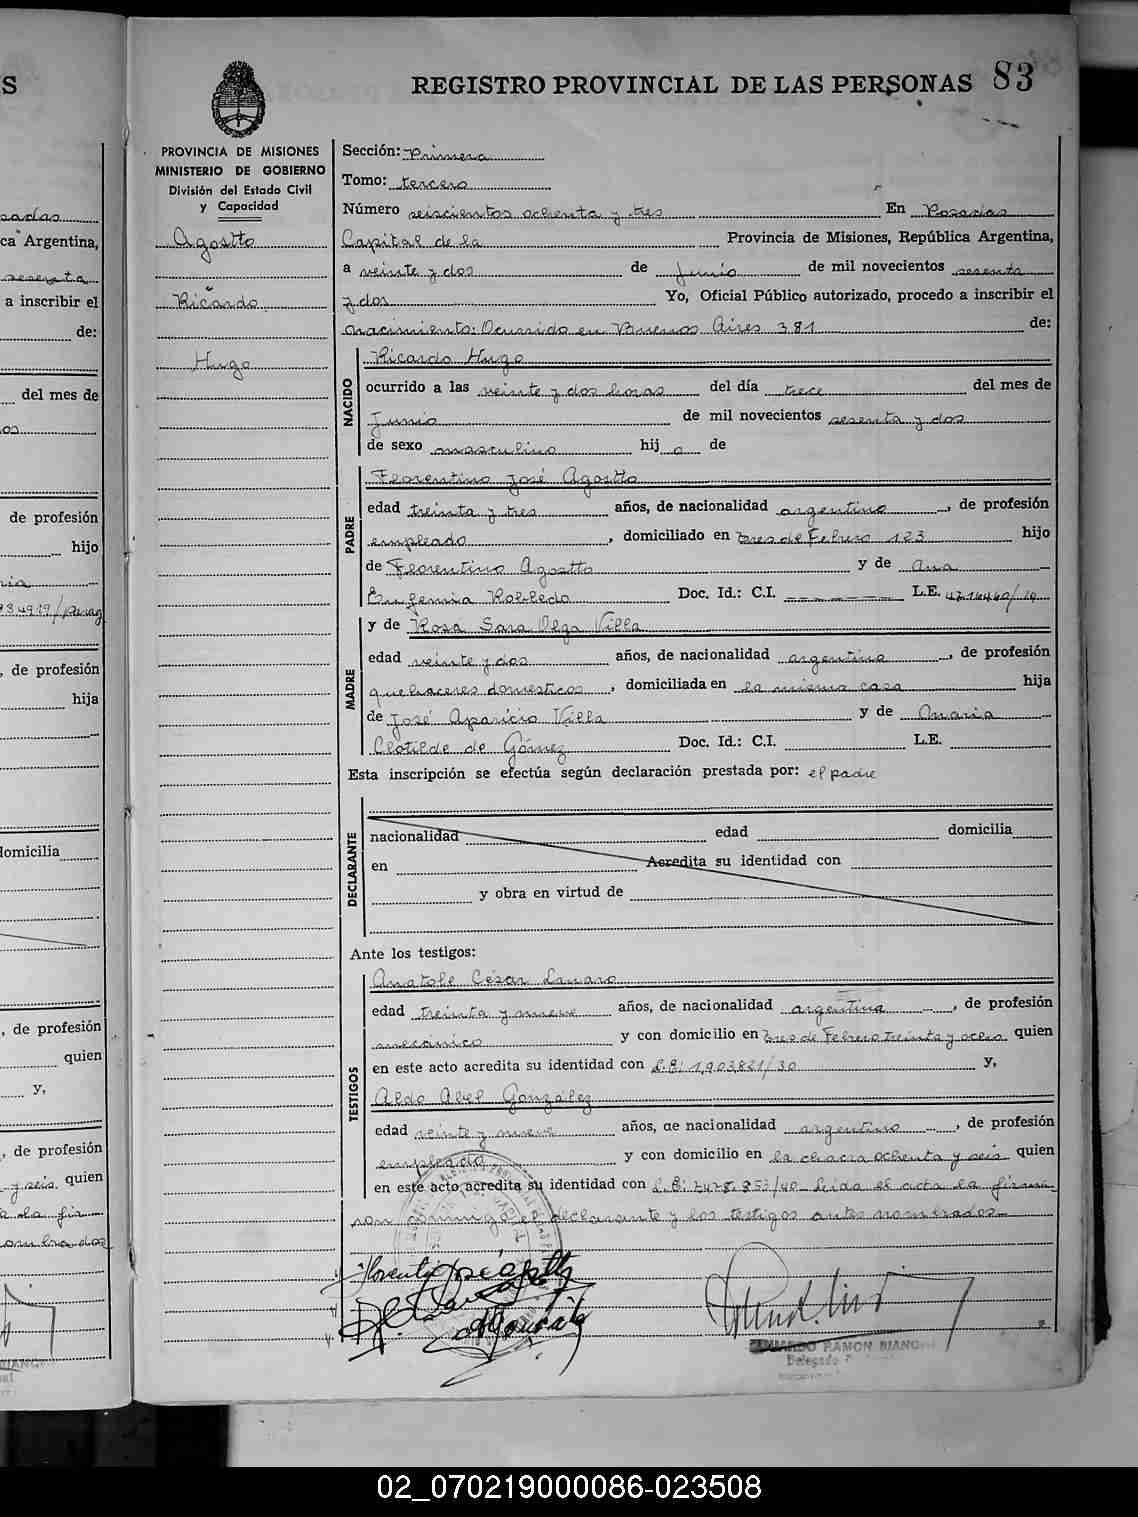 REGISTRO PROVINCIAL DE LAS PERSONAS 83
PROVINCIA DE MISIONES
MINISTERIO DE GOBIERNO
División del Estado Civil
y Capacidad
Agostto
Ricardo
Hugo
Sección: Primera
Tomo: tercero
Número seiscientos ochenta y tres En Posadas
Capital de la Provincia de Misiones, República Argentina,
a veinte y dos de Junio de mil novecientos sesenta
y dos Yo, Oficial Público autorizado, procedo a inscribir el
nacimiento: Ocurrido en Buenos Aires 381 de:
NACIDO
Ricardo Hugo
ocurrido a las veinte y dos horas del día trece del mes de
Junio de mil novecientos sesenta y dos
de sexo masculino hij o de
PADRE
Florentino José Agostto
edad treinta y tres años, de nacionalidad argentino, de profesión
empleado, domiciliado en tres de Febrero 123 hijo
de Florentino Agostto y de Ana
Eufemia Robledo Doc. Id.: C.I. L.E.
MADRE
y de Rosa Sara Olga Villa
edad veinte y dos años, de nacionalidad argentina, de profesión
quehaceres domesticos, domiciliada en la misma casa hija
de José Aparicio Villa y de Maria
Clotilde de Gómez Doc. Id.: C.I. L.E.
Esta inscripción se efectúa según declaración prestada por: el padre
DECLARANTE
nacionalidad edad domicilia
en Acredita su identidad con
y obra en virtud de
Ante los testigos:
TESTIGOS
Anatole César
edad treinta y nueve años, de nacionalidad argentina, de profesión
mecánico y con domicilio en tres de Febrero treinta y ocho quien
en este acto acredita su identidad con L.E: 1,903,821/30 y,
Aldo Abel González
edad veinte y nueve años, de nacionalidad argentino, de profesión
empleado y con domicilio en la chacra ochenta y seis quien
en este acto acredita su identidad con L.E: 7.478.853/40 Leida el acta la firma
ron conmigo el declarante y los testigos antes nombrados
RAMON BIANCHI
Delegado
02_070219000086-023508